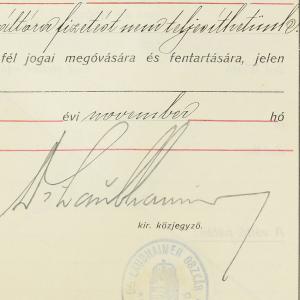 váltóra fizetést nem teljesíthetünk
fél jogai megóvására és fentartására, jelen
évi november hó
Dr Laubhaimer
kir. közjegyző.
LAUBHAIMER OSZKÁR